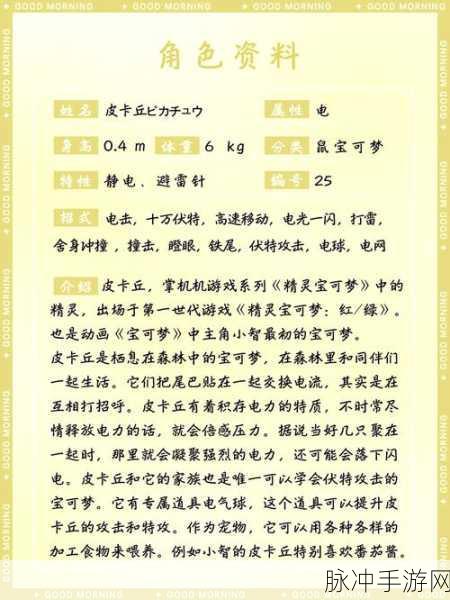 GOOD MORNING + GOOD MORNING + GOOD MORNING
角色资料
姓名 皮卡丘ピカチュウ 属性 电
身高 0.4 m 体重 6 kg 分类 鼠宝可梦
特性 静电、避雷针 编号 25
招式 电击，十万伏特，高速移动，电光一闪，打雷，
舍身冲撞，撞击，瞪眼，铁尾，伏特攻击，电球，电网
介绍 皮卡丘，掌机机游戏系列《精灵宝可梦》中的
精灵，出场于第一世代游戏《精灵宝可梦：红/绿》。
也是动画《宝可梦》中主角小智最初的宝可梦。
皮卡丘是栖息在森林中的宝可梦，在森林里和同伴们
一起生活。它们把尾巴贴在一起交换电流，其实是在
互相打招呼。皮卡丘有着积存电力的特质，不时常尽
情释放电力的话，就会倍感压力。据说当好几只聚在
一起时，那里就会凝聚强烈的电力，还可能会落下闪
电。皮卡丘和它的家族也是唯一可以学会伏特攻击的
宝可梦。它有专属道具电气球，这个道具可以提升皮
卡丘的攻击和特攻。作为宠物，它可以用各种各样的
加工食物来喂养。例如小智的皮卡丘特别喜欢番茄酱。
脉冲手游网